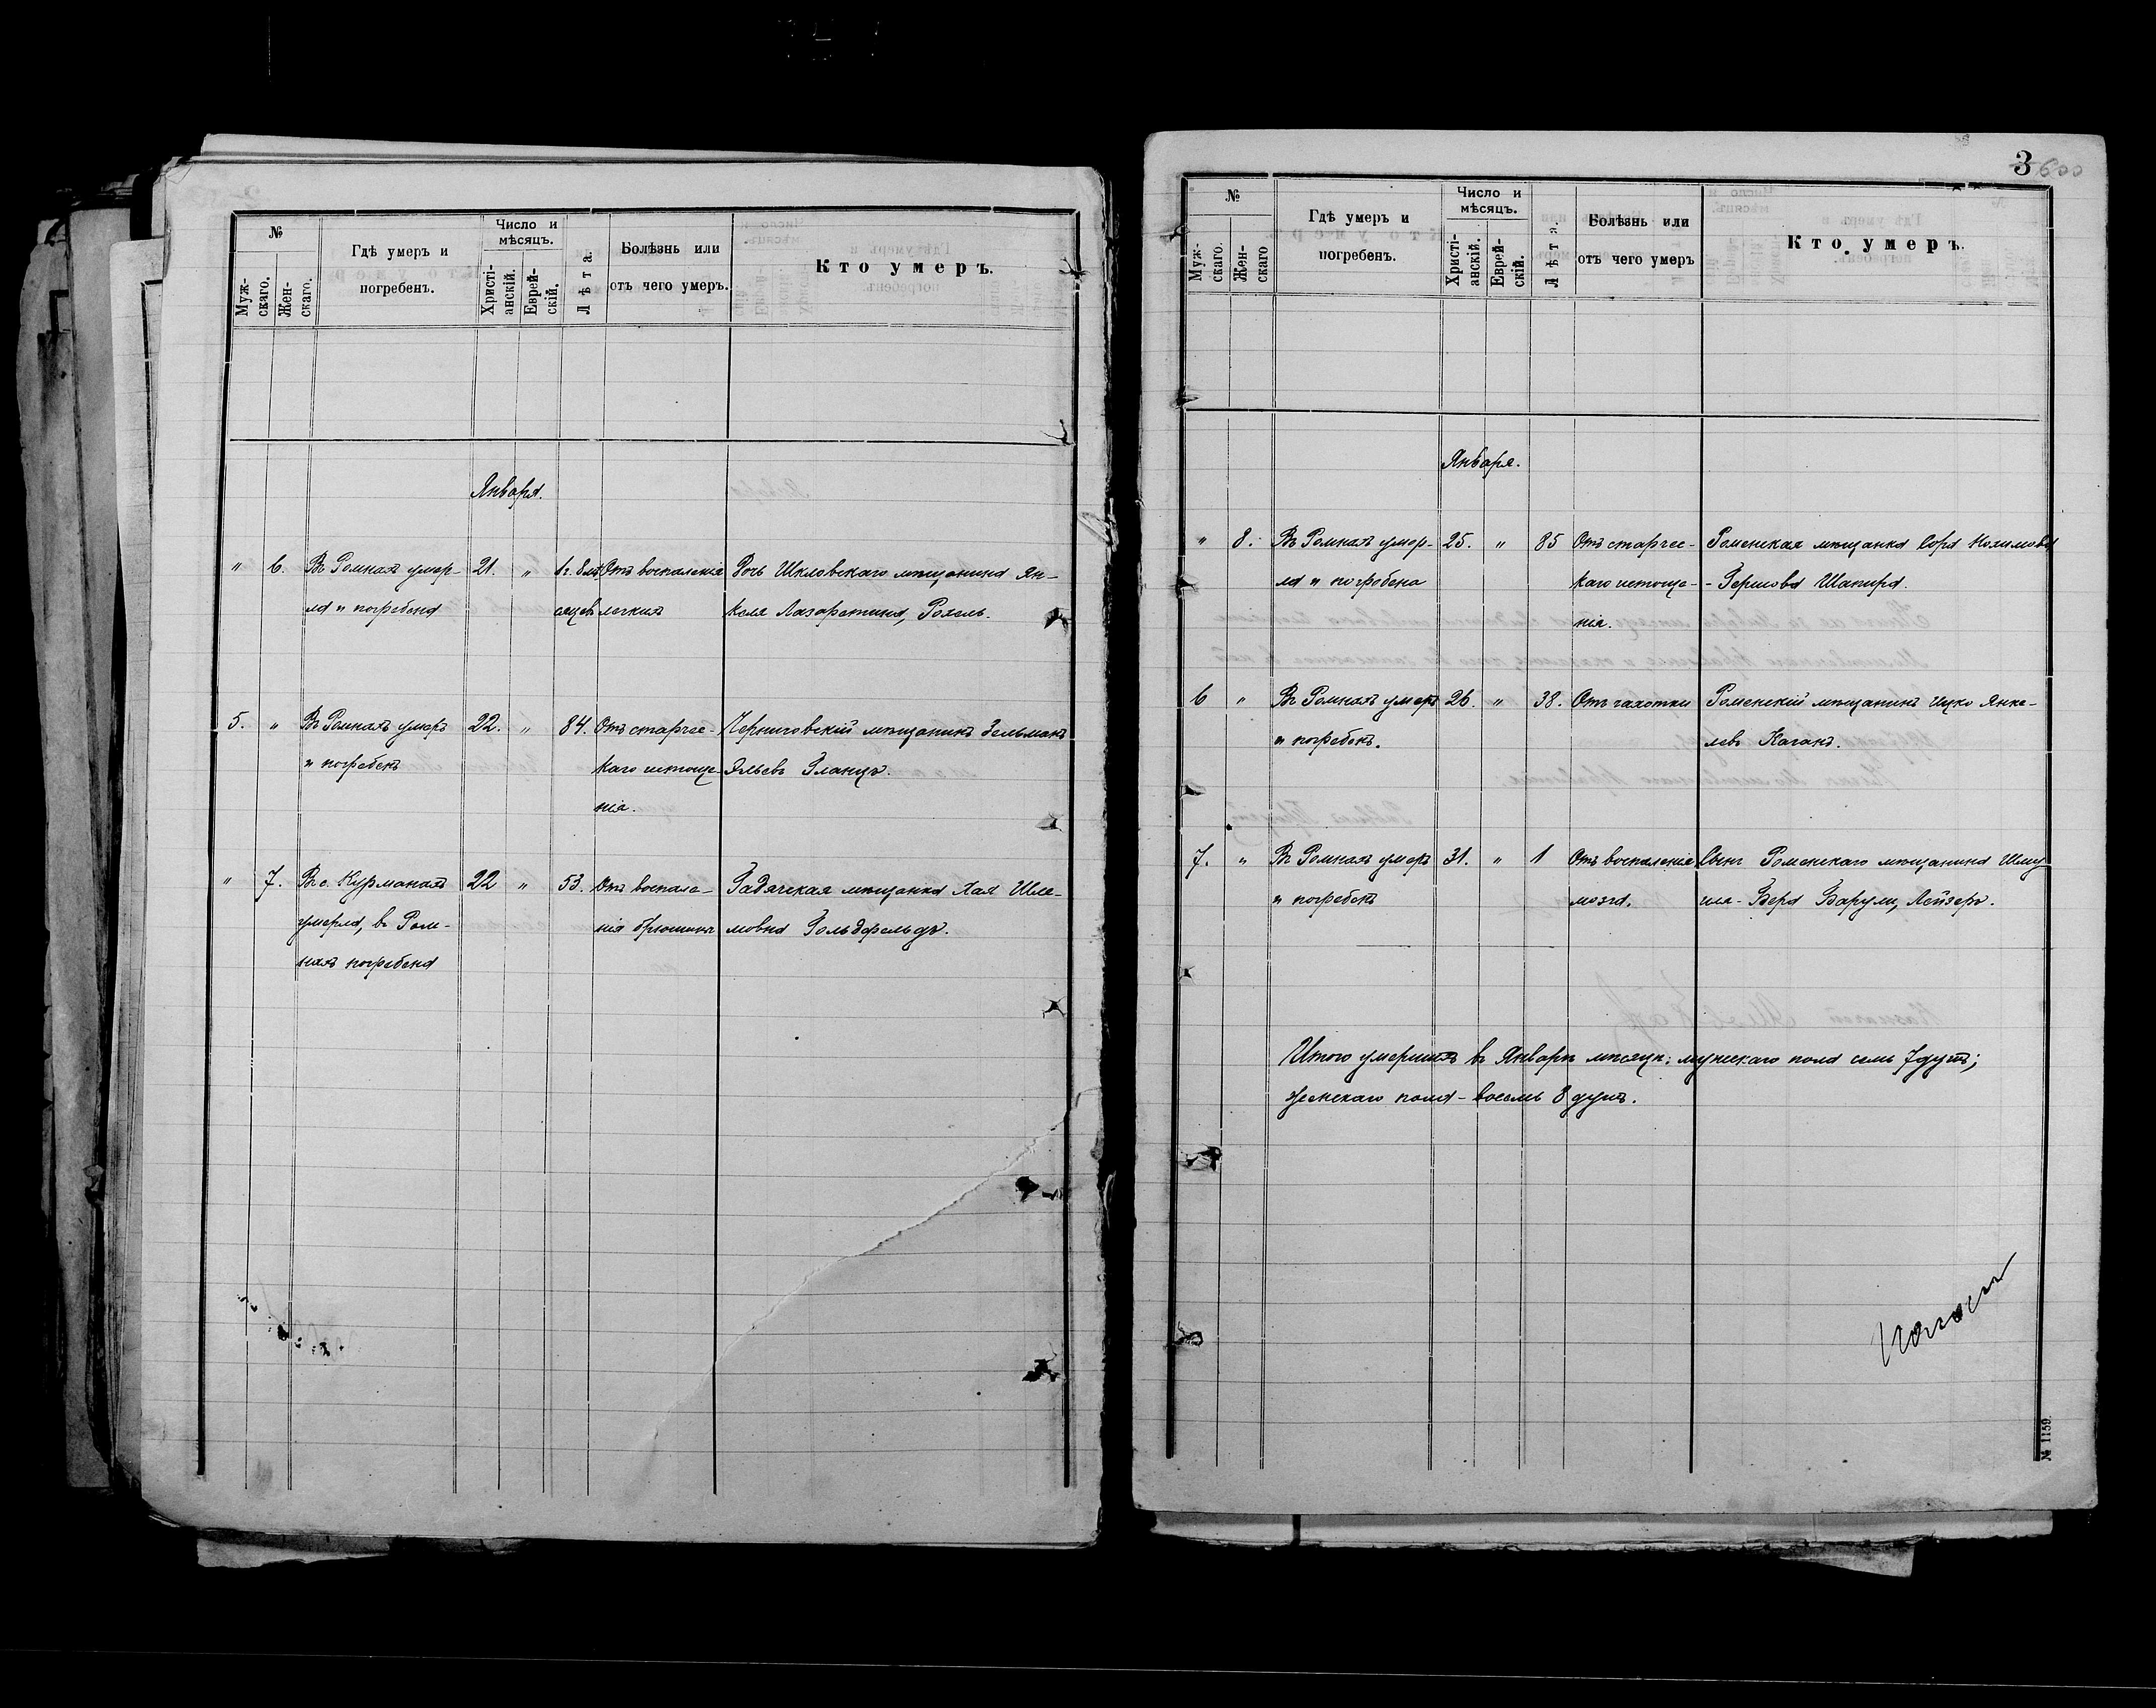 №
Муж-
скаго.
Жен-
скаго.
Гдѣ умеръ и
погребенъ.
Число и
мѣсяцъ.
Христі-
анскій.
Еврей-
скій.
Лѣта.
Болѣзнь или
отъ чего умеръ.
Кто умеръ.
Января.
" 6. Въ Ромнахъ умер- 21. " 1 г. 8 мѣ- Отъ воспаленія Дочь Шкловскаго мѣщанина Ян-
ла и погребена сяцевъ легкихъ келя Лазаретина, Рохель.
5. " Въ Ромнахъ умеръ 22. " 84. Отъ старчес- Черниговскій мѣщанинъ Зельманъ
и погребенъ каго истоще- Эльевъ Гланцъ.
нія.
" 7. Въ с. Курманахъ 22 " 53. Отъ воспале- Гадячская мѣщанка Хая Шле-
умерла, въ Ром- нія брюшины мовна Гольдфельдъ.
нахъ погребена
3 600
№
Муж-
скаго.
Жен-
скаго
Гдѣ умеръ и
погребенъ.
Число и
мѣсяцъ.
Христі-
анскій.
Еврей-
скій.
Лѣта.
Болѣзнь или
отъ чего умеръ
Кто умеръ.
Января.
" 8. Въ Ромнахъ умер- 25. " 85 Отъ старчес- Роменская мѣщанка Сора Нохимова
ла и погребена каго истоще- - Гершова Шапиро.
нія.
6 " Въ Ромнахъ умеръ 26. " 38. Отъ чахотки Роменскій мѣщанинъ Ицко Янке-
и погребенъ. левъ Каганъ.
7. " Въ Ромнахъ умеръ 31. " 1 Отъ воспаленія Сынъ Роменскаго мѣщанина Шму
и погребенъ мозга. иля-Бера Барули, Лейзеръ.
Итого умершихъ въ Январѣ мѣсяцѣ: мужескаго пола семь 7 душъ;
женскаго пола - восемь 8 душъ.
№ 1159.